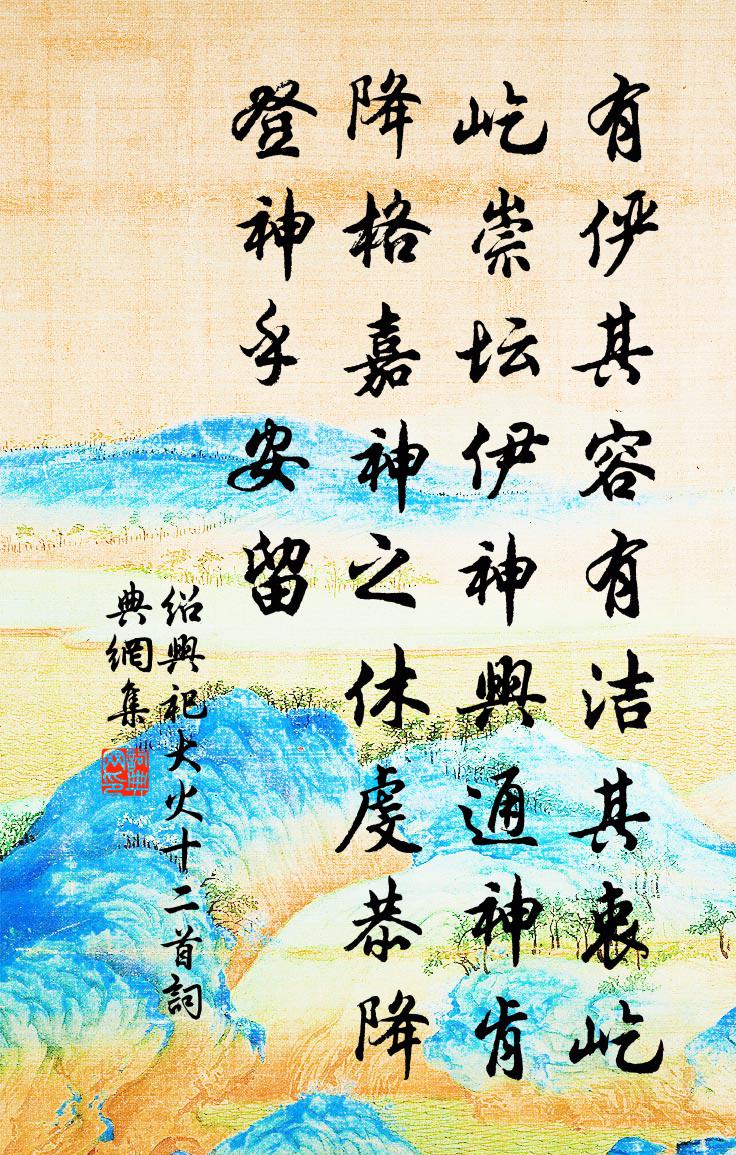 有俨其容有洁其衷屹
屹崇坛伊神興通神肯
降格嘉神之休虔恭降
登神乎安留
绍興祀大火十二首詞
典網集